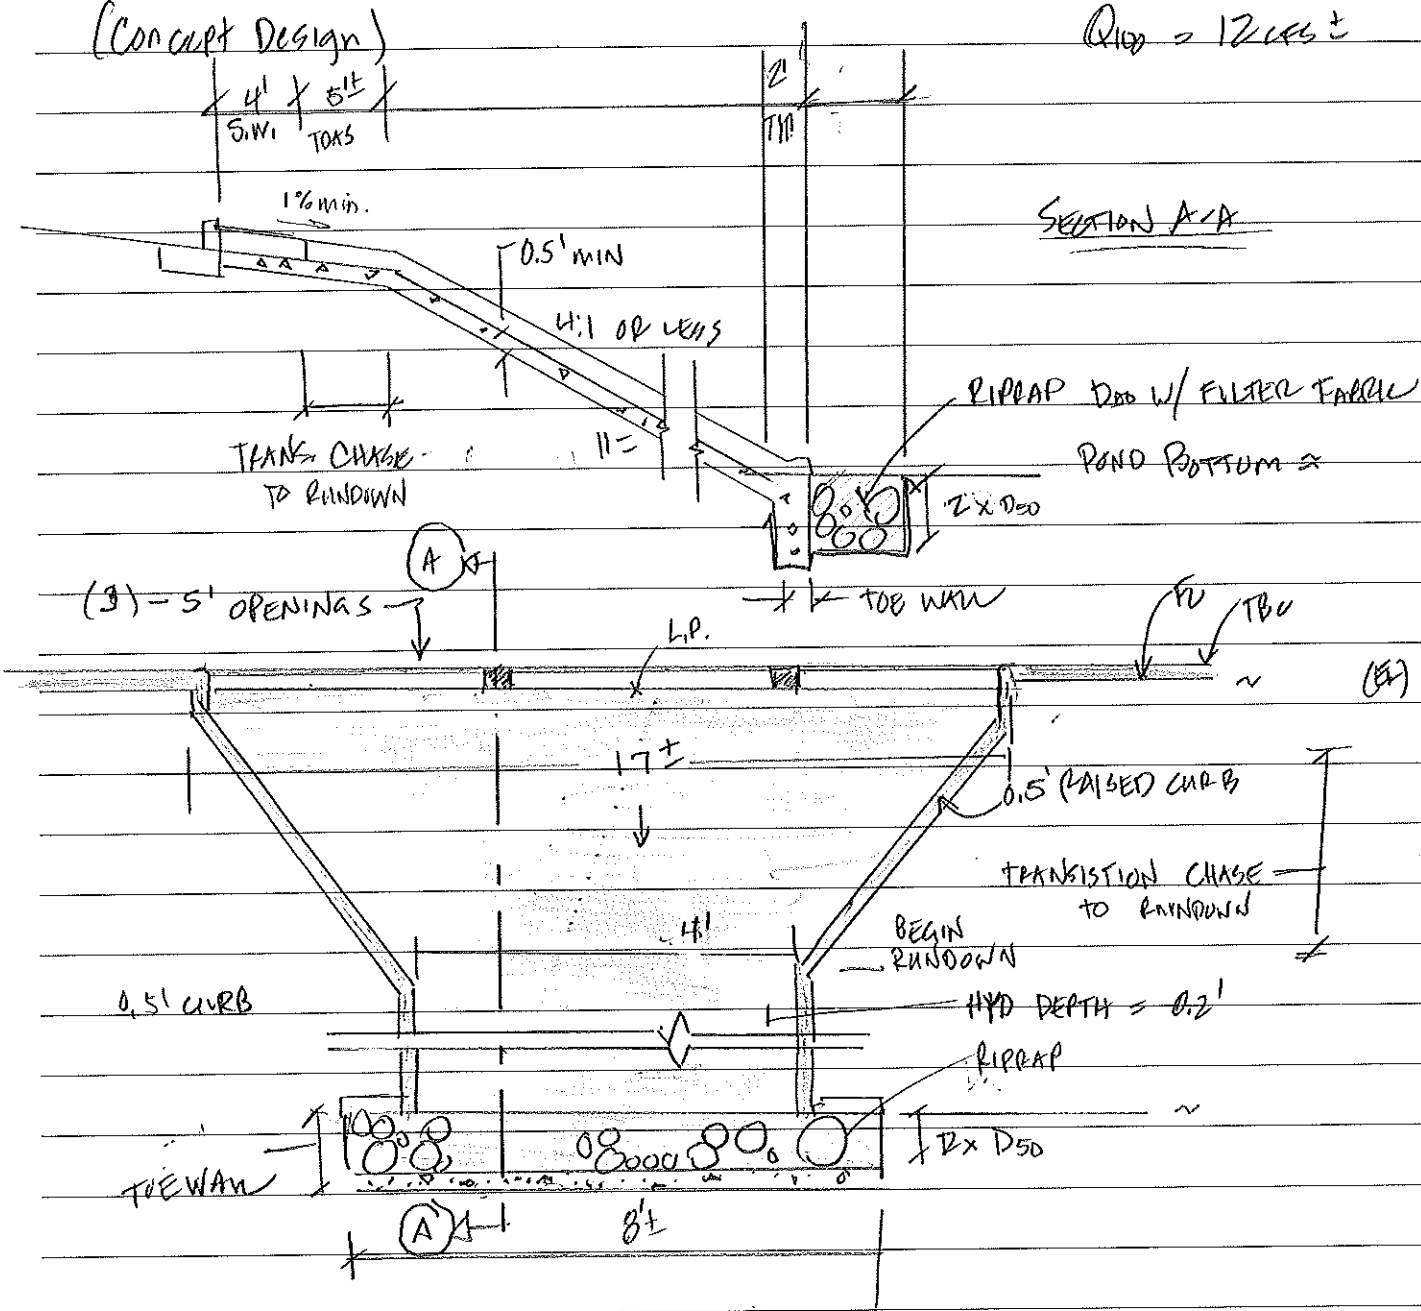 (Concept Design)
Q100 = 12 cfs ±
4' 5'±
S.W. TDAS
2'
TYP.
1% min.
SECTION A-A
0.5' MIN
4:1 OR LESS
RIPRAP D50 W/ FILTER FABRIC
TRANS. CHASE
TO RUNDOWN
POND BOTTOM ≈
2 x D50
A
(3) - 5' OPENINGS
TOE WALL
L.P.
FL
TBC
~
17 ±
0.5' RAISED CURB
TRANSISTION CHASE
TO RUNDOWN
4'
BEGIN
RUNDOWN
0.5' CURB
HYD DEPTH = 0.2'
RIPRAP
~
2x D50
TOE WALL
A
8'±